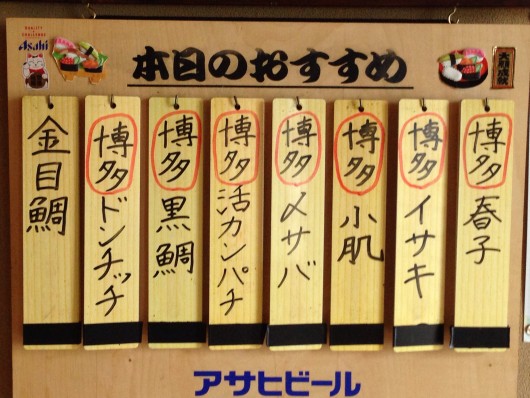 Asahi
本日のおすすめ
博多 春子
博多 イサキ
博多 小肌
博多 〆サバ
博多 活カンパチ
博多 黒鯛
博多 ドンチッチ
金目鯛
アサヒビール